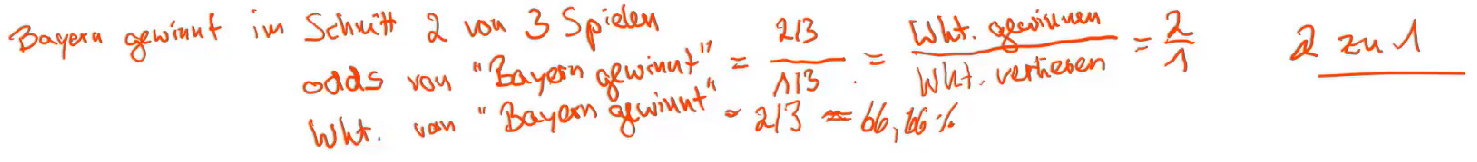 Bayern gewinnt im Schnitt 2 von 3 Spielen
odds von "Bayern gewinnt" = 2/3 / 1/3 = Wht. gewinnen / Wht. verlieren = 2/1 2 zu 1
Wht. von "Bayern gewinnt" = 2/3 ≈ 66,66%